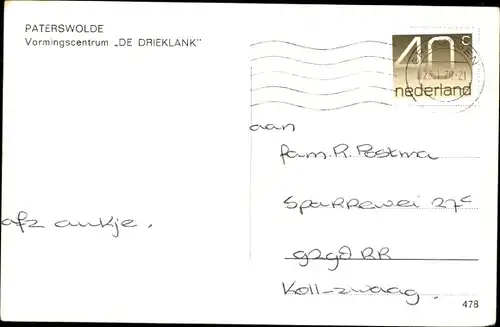 PATERSWOLDE
Vormingscentrum „DE DRIEKLANK"
40c
nederland
aan
fam. R. Postma
Sparrewei 27c
9298 RR
Koll-zwaag.
afz ankje.
478